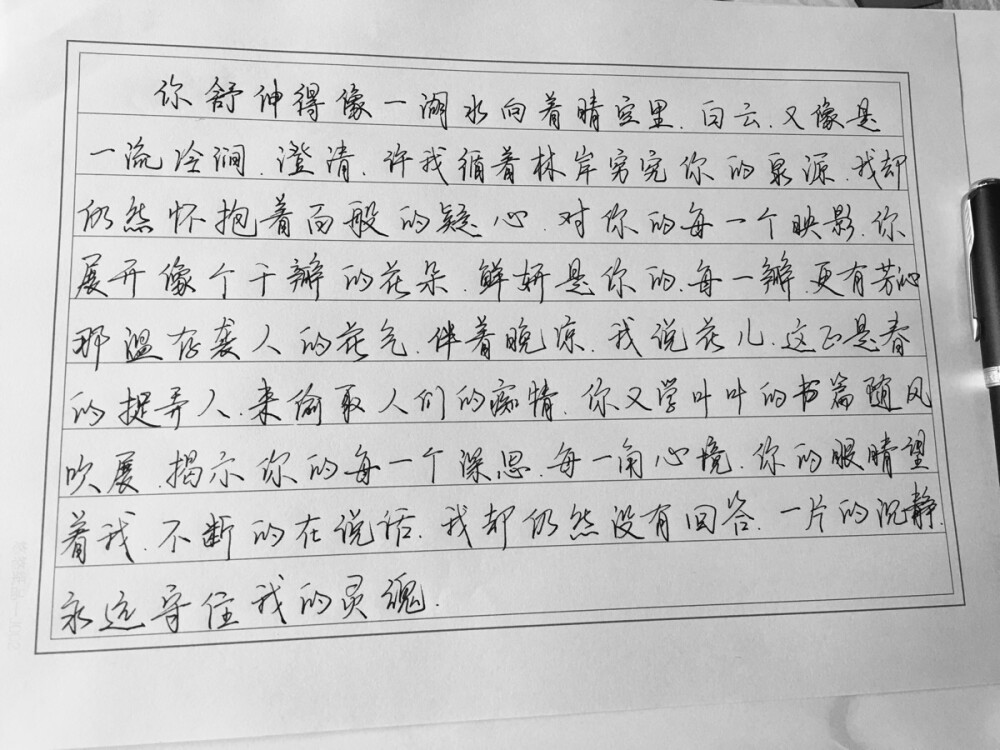 你舒伸得像一湖水向着晴空里.白云.又像是
一流冷涧.澄清.许我循着林岸穷究你的泉源.我却
仍然怀抱着百般的疑心.对你的每一个映影.你
展开像个千瓣的花朵.鲜妍是你的.每一瓣.更有芳沁
那温存袭人的花气.伴着晚凉.我说花儿.这正是春
的捉弄人.来偷取人们的痴情.你又学叶叶的书篇随风
吹展.揭示你的每一个深思.每一角心境.你的眼睛望
着我.不断的在说话.我却仍然没有回答.一片的沉静.
永远守住我的灵魂.